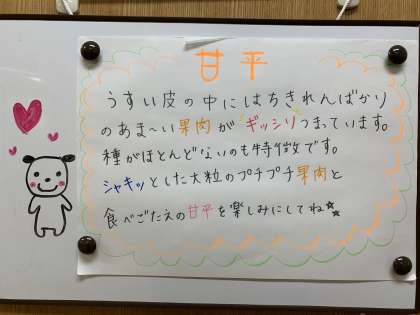 甘平
うすい皮の中にはちきれんばかり
のあま〜い果肉がギッシリつまっています。
種がほとんどないのも特徴です。
シャキッとした大粒のプチプチ果肉と
食べごたえの甘平を楽しみにしてね☆☆